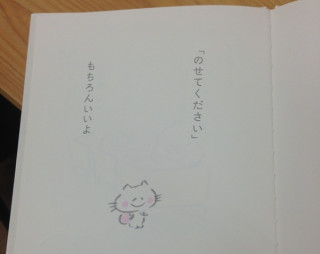 「のせてください」
もちろんいいよ